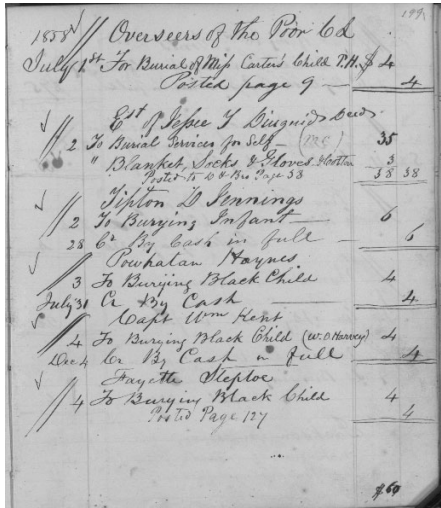 199
1858 Overseers of the Poor Cd
July 1st To For Burial of Miss Carter's Child P.H. $ 4
Posted page 9 — 4
Est of Jesse T Diuguid Decd
2 To Burial Services for Self — (MC) 35
" Blanket, Socks & Gloves 3
Posted to D & Bro Page 53 38 38
Tipton D Jennings
2 To Burying Infant — 6
28 Cr By Cash in full — 6
Powhatan Haynes
3 To Burying Black Child 4
July 31 Cr By Cash — 4
Capt Wm Kent
4 To Burying Black Child (W.O Harvey) 4
Dec 4 Cr By Cash in full 4
Fayette Steptoe
4 To Burying Black Child 4
Posted Page 127 4
$60